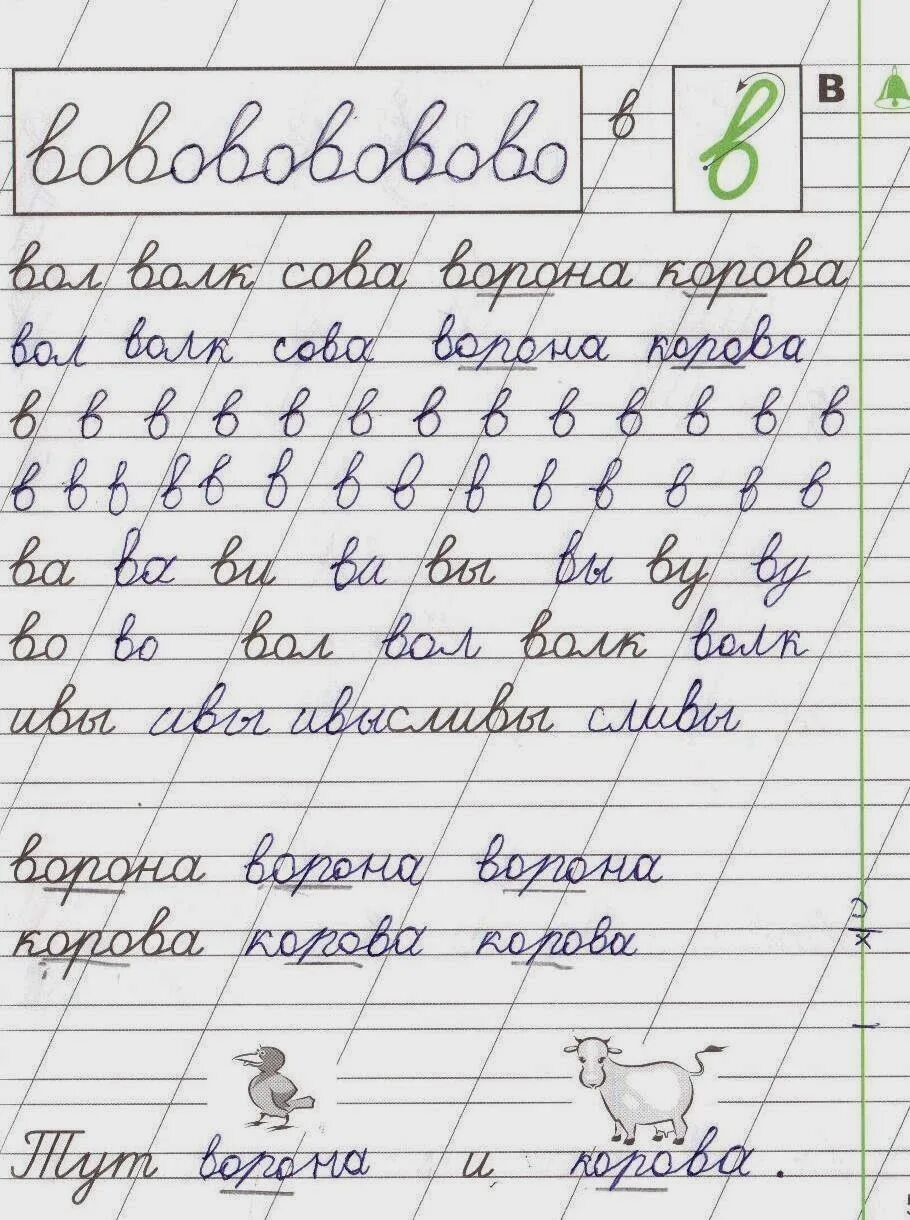 вовововововo в в В
вол волк сова ворона корова
вол волк сова ворона корова
в в в в в в в в в в в в в
в в в в в в в в в в в в в в
ва ва ви ви вы вы ву ву
во во вол вол волк волк
ивы ивы ивы сливы сливы
ворона ворона ворона
корова корова корова
Тут ворона и корова .